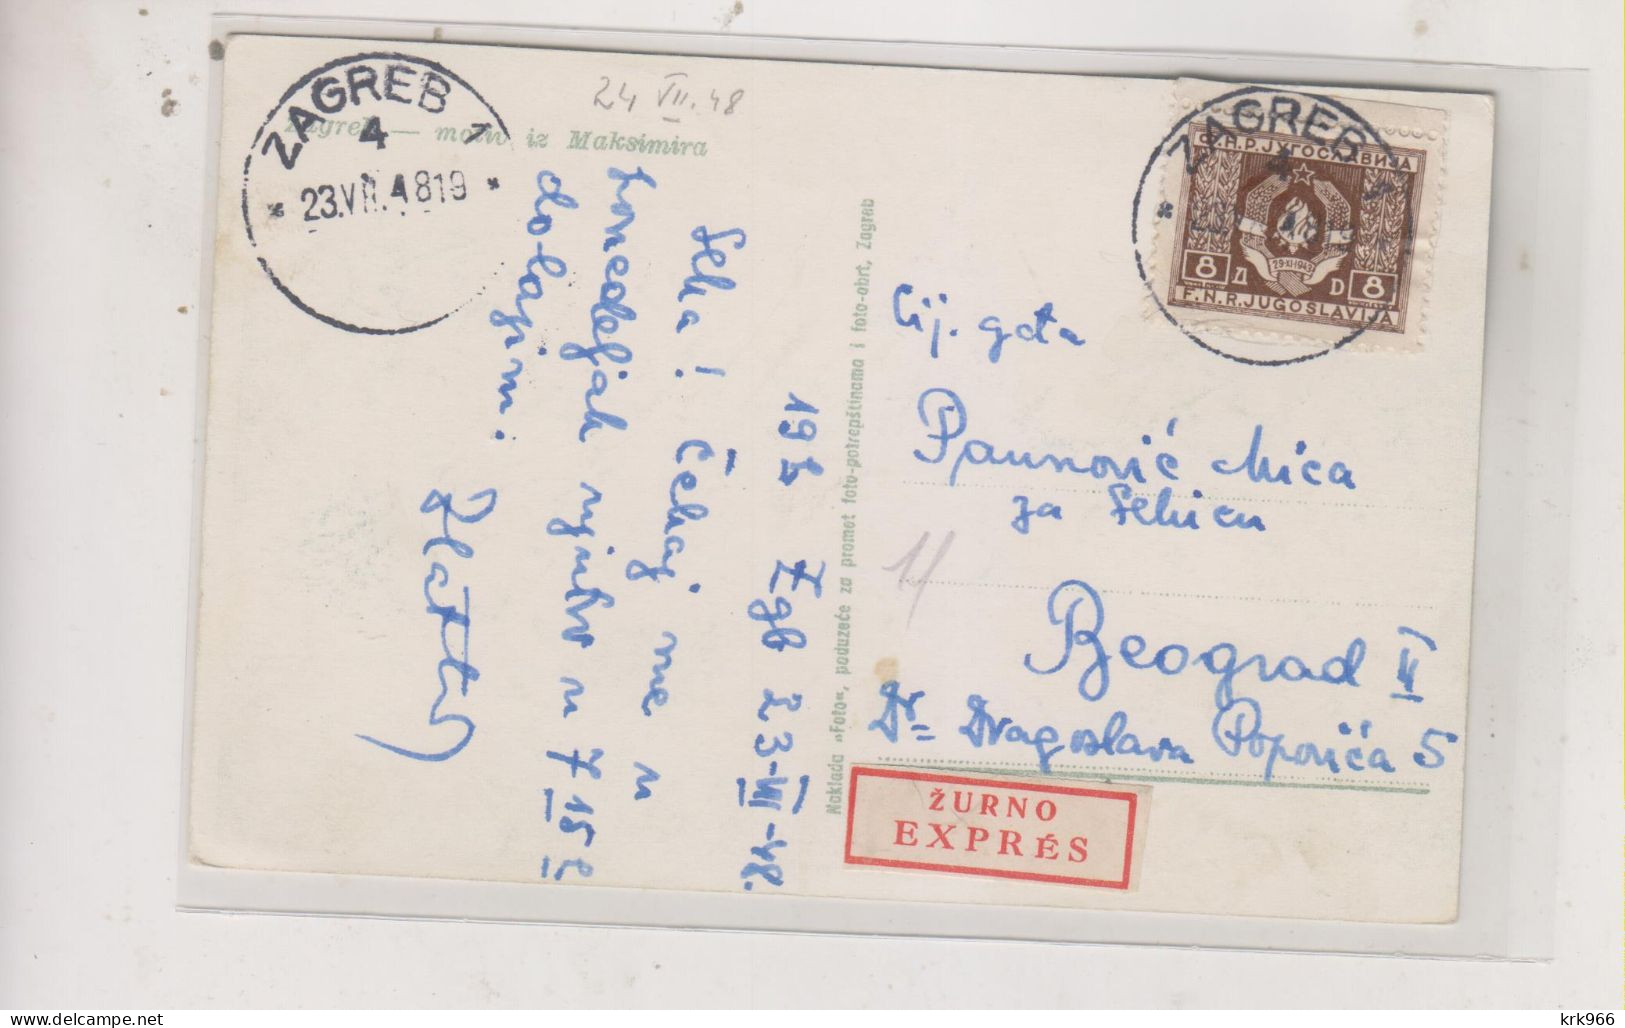 ZAGREB 1
4
* 23.VII.4819 *
24 VII.48
Zagreb — motiv iz Maksimira
19h Zgb 23-VII-48.
Seka! Čekaj me u
ponedeljak ujutro u 7 15
dolazim.
Zlatko
Naklada »Foto«, poduzeće za promet foto-potrepštinama i foto-obrt, Zagreb
ZAGREB 1
4
Ф.Н.Р.ЈУГОСЛАВИЈА
29·XI·1943
8 Д D 8
F.N.R.JUGOSLAVIJA
Cij. gđa
Paunović Mica
za Sekicu
Beograd II
Dr= Dragoslava Popovića 5
ŽURNO
EXPRÉS
krk966